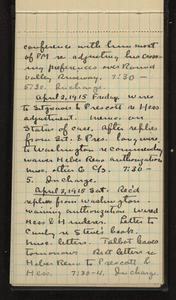 conference with him most
of PM re adjusting his cross-
ing preferences over Round
Valley driveway. 7:30 -
5:30. In charge.
April 2, 1915 Friday. Wire
to Sitgreaves & Prescott re Hess
adjustment. Memo. on
status of case. After replies
from Sit. & Pres. long wire
to Washington recommending
waiver Heber Reno authorization
misc. other G
5. In charge.
April 3, 1915 Sat. Rec'd
replies from Washington
waiving authorization wired
Hess & Letter to
re book.
misc. letters. Talbot leaves
tomorrow. Rett letters re
Heber Reno to Prescott &
Hess. 7:30-4. In charge